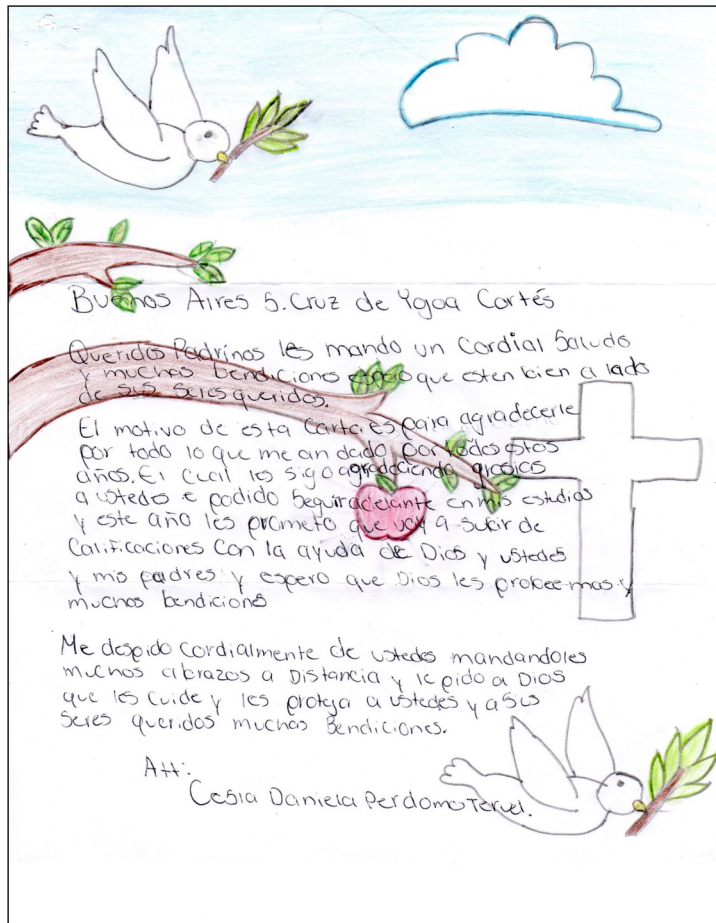 Buenos Aires S. Cruz de Yojoa Cortés
Queridos Padrinos les mando un Cordial Saludo
y muchas bendiciones espero que esten bien a lado
de sus seres queridos.
El motivo de esta Carta es para agradecerle
por todo lo que me an dado por todos estos
años. El cual les sigo agradeciendo grasias
a ustedes e podido Seguir adelante en mis estudios
y este año les prometo que voy a subir de
Calificaciones Con la ayuda de Dios y ustedes
y mis padres y espero que Dios les probee mas y
muchas bendiciones
Me despido Cordialmente de ustedes mandandoles
muchos abrazos a Distancia y le pido a Dios
que les Cuide y les proteja a ustedes y a sus
Seres queridos muchas Bendiciones.
Att:
Cesia Daniela Perdomo Teruel.